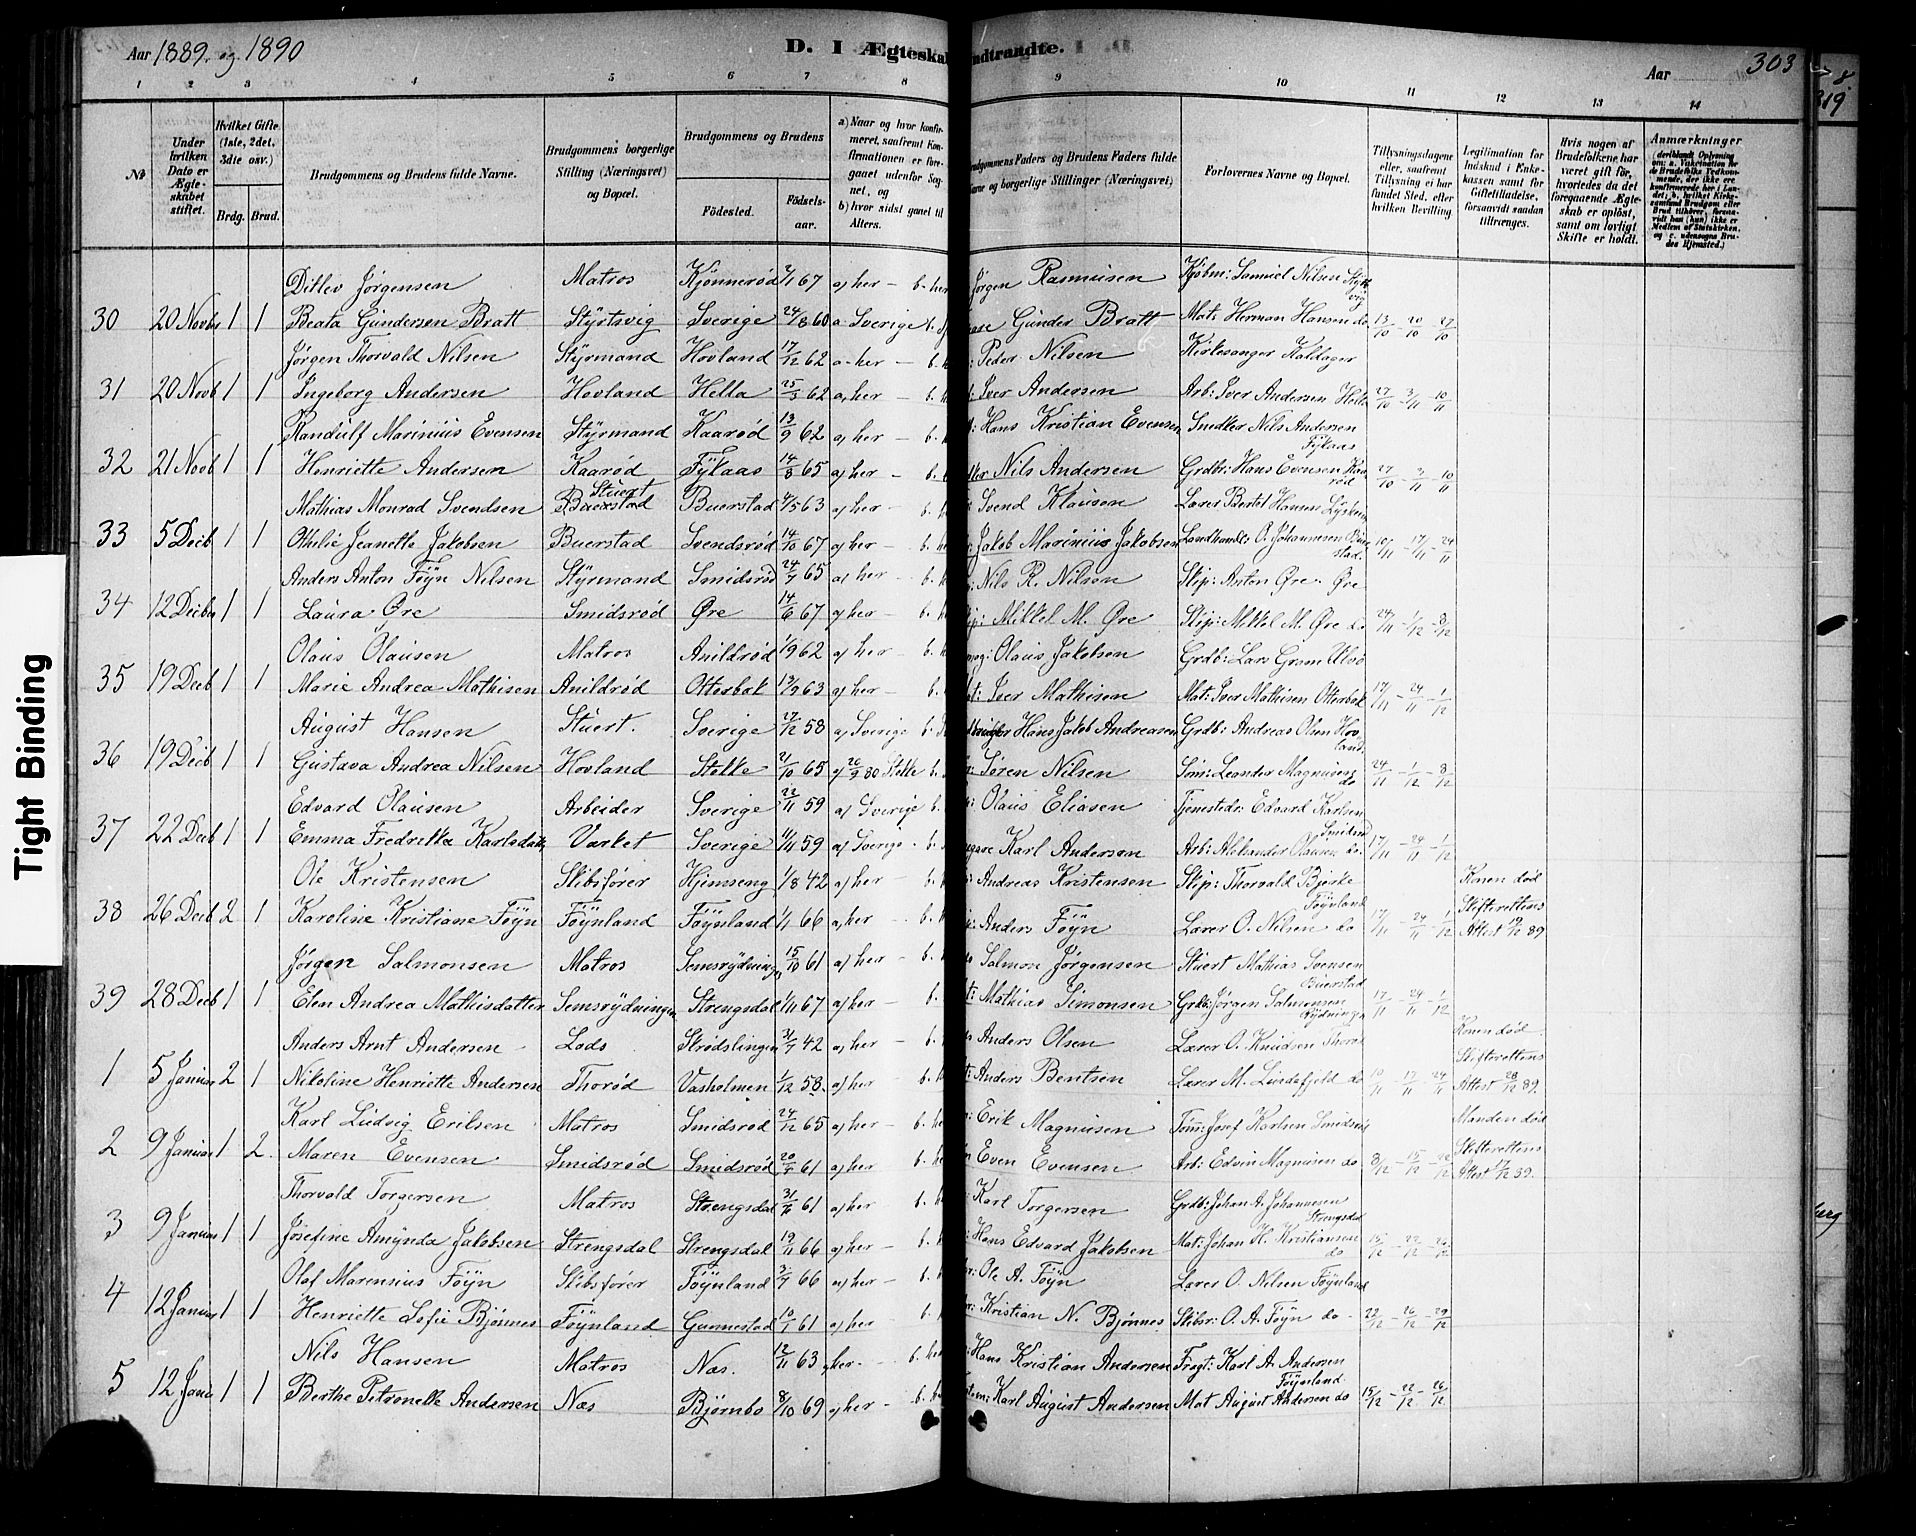 Aar 1889. og 1890
D. I Ægteskab
Indtraadte.
Aar
303
1 2 3 4 5 6 7 8 9 10 11 12 13 14
No
Under hvilken Dato er Ægteskabet stiftet.
Hvilket Gifte (1ste, 2det, 3die osv.)
Brdg. Brud.
Brudgommens og Brudens fulde Navne.
Brudgommens borgerlige Stilling (Næringsvei) og Bopæl.
Brudgommens og Brudens
Fødested.
Fødselsaar.
a) Naar og hvor konfirmeret, saafremt Konfirmationen er foregaaet udenfor Sognet, og
b) hvor sidst gaaet til Alters.
Brudgommens Faders og Brudens Faders fulde Navne og borgerlige Stillinger (Næringsvei)
Forlovernes Navne og Bopæl.
Tillysningsdagene eller, saafremt Tillysning ei har fundet Sted, efter hvilken Bevilling.
Legitimation for Indskud i Enkekassen samt for Giftetilladelse, forsaavidt saadan tiltrænges.
Hvis nogen af Brudefolkene har været gift før, hvorledes da det foregaaende Ægteskab er opløst, samt om lovligt Skifte er holdt.
Anmærkninger
Ditlev Jørgensen Matros Kjønnerød 2/1 67 a) her - b. her Jørgen Rasmusen Kjøbm: Samuel Nilsen
30 20 Novbr 1 1 Beata Gundersen Bratt Styrtsvig Sverige 24/8 60 a Sverige Gunder Bratt Mat: Herman Hansen do 13/10 - 20/10 - 27/10
Jørgen Thorvald Nilsen Styrmand Hovland 17/12 62 a - her - b. Peder Nilsen Kirkesanger Kaldager
31 20 Novb 1 1 Ingeborg Andersen Hovland Hella 25/3 62 a) her - b. Iver Andersen Arb: Iver Andersen Hella 27/10 - 3/11 - 10/11
Randulf Marinius Evensen Styrmand Kaarød 13/9 62 a) her - b. Hans Kristian Evensen Snedker Nils Andersen Fylaas
32 21 Novb 1 1 Henriette Andersen Kaarød Fylaas 14/8 65 a) her - b. Nils Andersen Grdbr: Hans Evensen Kaarød 27/10 - 3/11 - 10/11
Mathias Monrad Svendsen Stuert Buerstad Buerstad 4/5 63 a) her - b. Svend Klausen Lærer Bertel Hansen
33 5 Decb 1 1 Othilie Jeanette Jakobsen Buerstad Svendsrød 14/10 67 a) her - b. Jakob Marinius Jakobsen Landhandler O. Johannesen Buerstad. 10/11 - 17/11 - 24/11
Anders Anton Føyn Nilsen Styrmand Smidsrød 24/7 65 a) her - b. Nils R. Nilsen Skip: Anton Øre Øre
34 12 Decbr 1 1 Laura Øre Smidsrød Øre 14/6 67 a) her - b. Mikkel M. Øre Skip: Mikkel M. Øre do 24/11 - 1/12 - 8/12
Olaus Olausen Matros Anildrød 1/9 62 a) her - b. Olaus Jakobsen Grdb: Lars Gram Ulvø
35 19 Decb 1 1 Marie Andrea Mathisen Anildrød Otterbæk 13/9 63 a) her - b. Iver Mathisen Mat: Iver Mathisen Otterbæk 17/11 - 24/11 - 1/12
August Hansen Stuert. Sverige 27/12 58 a) Sverige b. Hans Jakob Andreasen Grdb: Andreas Olsen Hovland.
36 19 Decb 1 1 Gustava Andrea Nilsen Hovland Stokke 21/10 65 a) 26/9 80 Stokke b. Søren Nilsen Søm: Leander Magnusen do 24/11 - 1/12 - 8/12
Edvard Olausen Arbeider Sverige 22/11 59 a) Sverige b. Olaus Eliasen Tjenestedr: Edvard Karlsen Smidsrød
37 22 Decb 1 1 Emma Fredrikka Karlsdatter Varket Sverige 11/11 59 a) Sverige b. Karl Anderson Arb: Aleksander Olausen do 17/11 - 24/11 - 1/12
Ole Kristensen Skibsfører Hjemseng 1/8 42 a) her b. Andreas Kristensen Skip: Thorvald Bjerke Føynland Konen død
38 26 Decb 2 1 Karoline Kristiane Føyn Føynland Føynland 1/1 66 a) her - b. Anders Føyn Lærer O. Nilsen do 17/11 - 24/11 - 1/12 Skifterettens Attest 19/12 89
Jørgen Salmonsen Matros Semsrydningen 15/10 61 a) her - b. Salmon Jørgensen Stuert Mathias Svensen Buerstad
39 28 Decb 1 1 Elen Andrea Mathisdatter Semsrydningen Strengsdal 1/11 67 a) her - b. Mathias Simonsen Grdb: Jørgen Salmonsen Rydningen 17/11 - 24/11 - 1/12
Anders Arnt Andersen Lods Skrødslingen 31/7 42 a) her - b. Anders Olsen Lærer O. Knudsen Thorød Konen død
1 5 Januar 2 1 Nikoline Henriette Andersen Thorød Vasholmen 1/12 58. a) her b. Anders Bentsen Lærer M. Lindefjeld do 10/11 17/11 - 24/11 Skifterettens Attest 28/12 89.
Karl Ludvig Eriksen Matros Smidsrød 24/12 65 a) her - b. Erik Magnusen Tøm: Josef Karlsen Smidsrød Manden død
2 9 Januar 1 2. Maren Evensen Smidsrød Smidsrød 20/5 61 a) her b. Even Evensen Arb: Edvin Magnusen do 8/12 - 15/12 - 22/12 Skifterettens Attest 89.
Thorvald Torgersen Matros Strengsdal 31/8 61 a) her - b. Karl Torgersen Grdb: Johan A. Johannesen Strengsdal
3 9 Januar 1 1 Josefine Amynda Jakobsen Strengsdal Strengsdal 19/11 66 a) her b. Hans Edvard Jakobsen Mat: Johan H. Kristiansen do 15/12 - 22/12 -
Olaf Marensius Føyn Skibsfører Føynland 3/7 66 a) her - b. Ole A. Føyn Lærer O. Nilsen Føynland
4 12 Januar 1 1 Henriette Sofie Bjønnes Føynland Gunnestad 10/1 61 a) her - b. Kristian N. Bjønnes Skibsr: O. A. Føyn do - 22/12 - 26/12 - 29/12
Nils Hansen Matros Næs. 12/11 63 a) her. - b. her Hans Kristian Andersen Fragt: Karl A. Andersen Føynland
5 12 Janu 1 1 Berthe Petronelle Andersen Næs Bjørnbo 8/10 69 a) her - b. Karl August Andersen Mat August Andersen do 15/12 - 22/12 - 26/12
Tight Binding